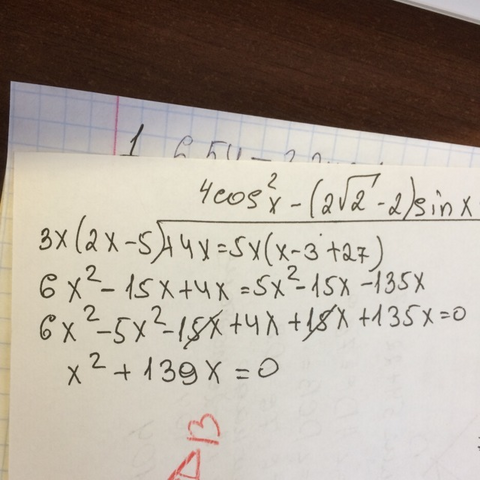 4cos²x - (2√2 - 2)sin x
3x(2x-5)+4x=5x(x-3+27)
6x²-15x+4x=5x²-15x-135x
6x²-5x²-15x+4x+15x+135x=0
x²+139x=0
B